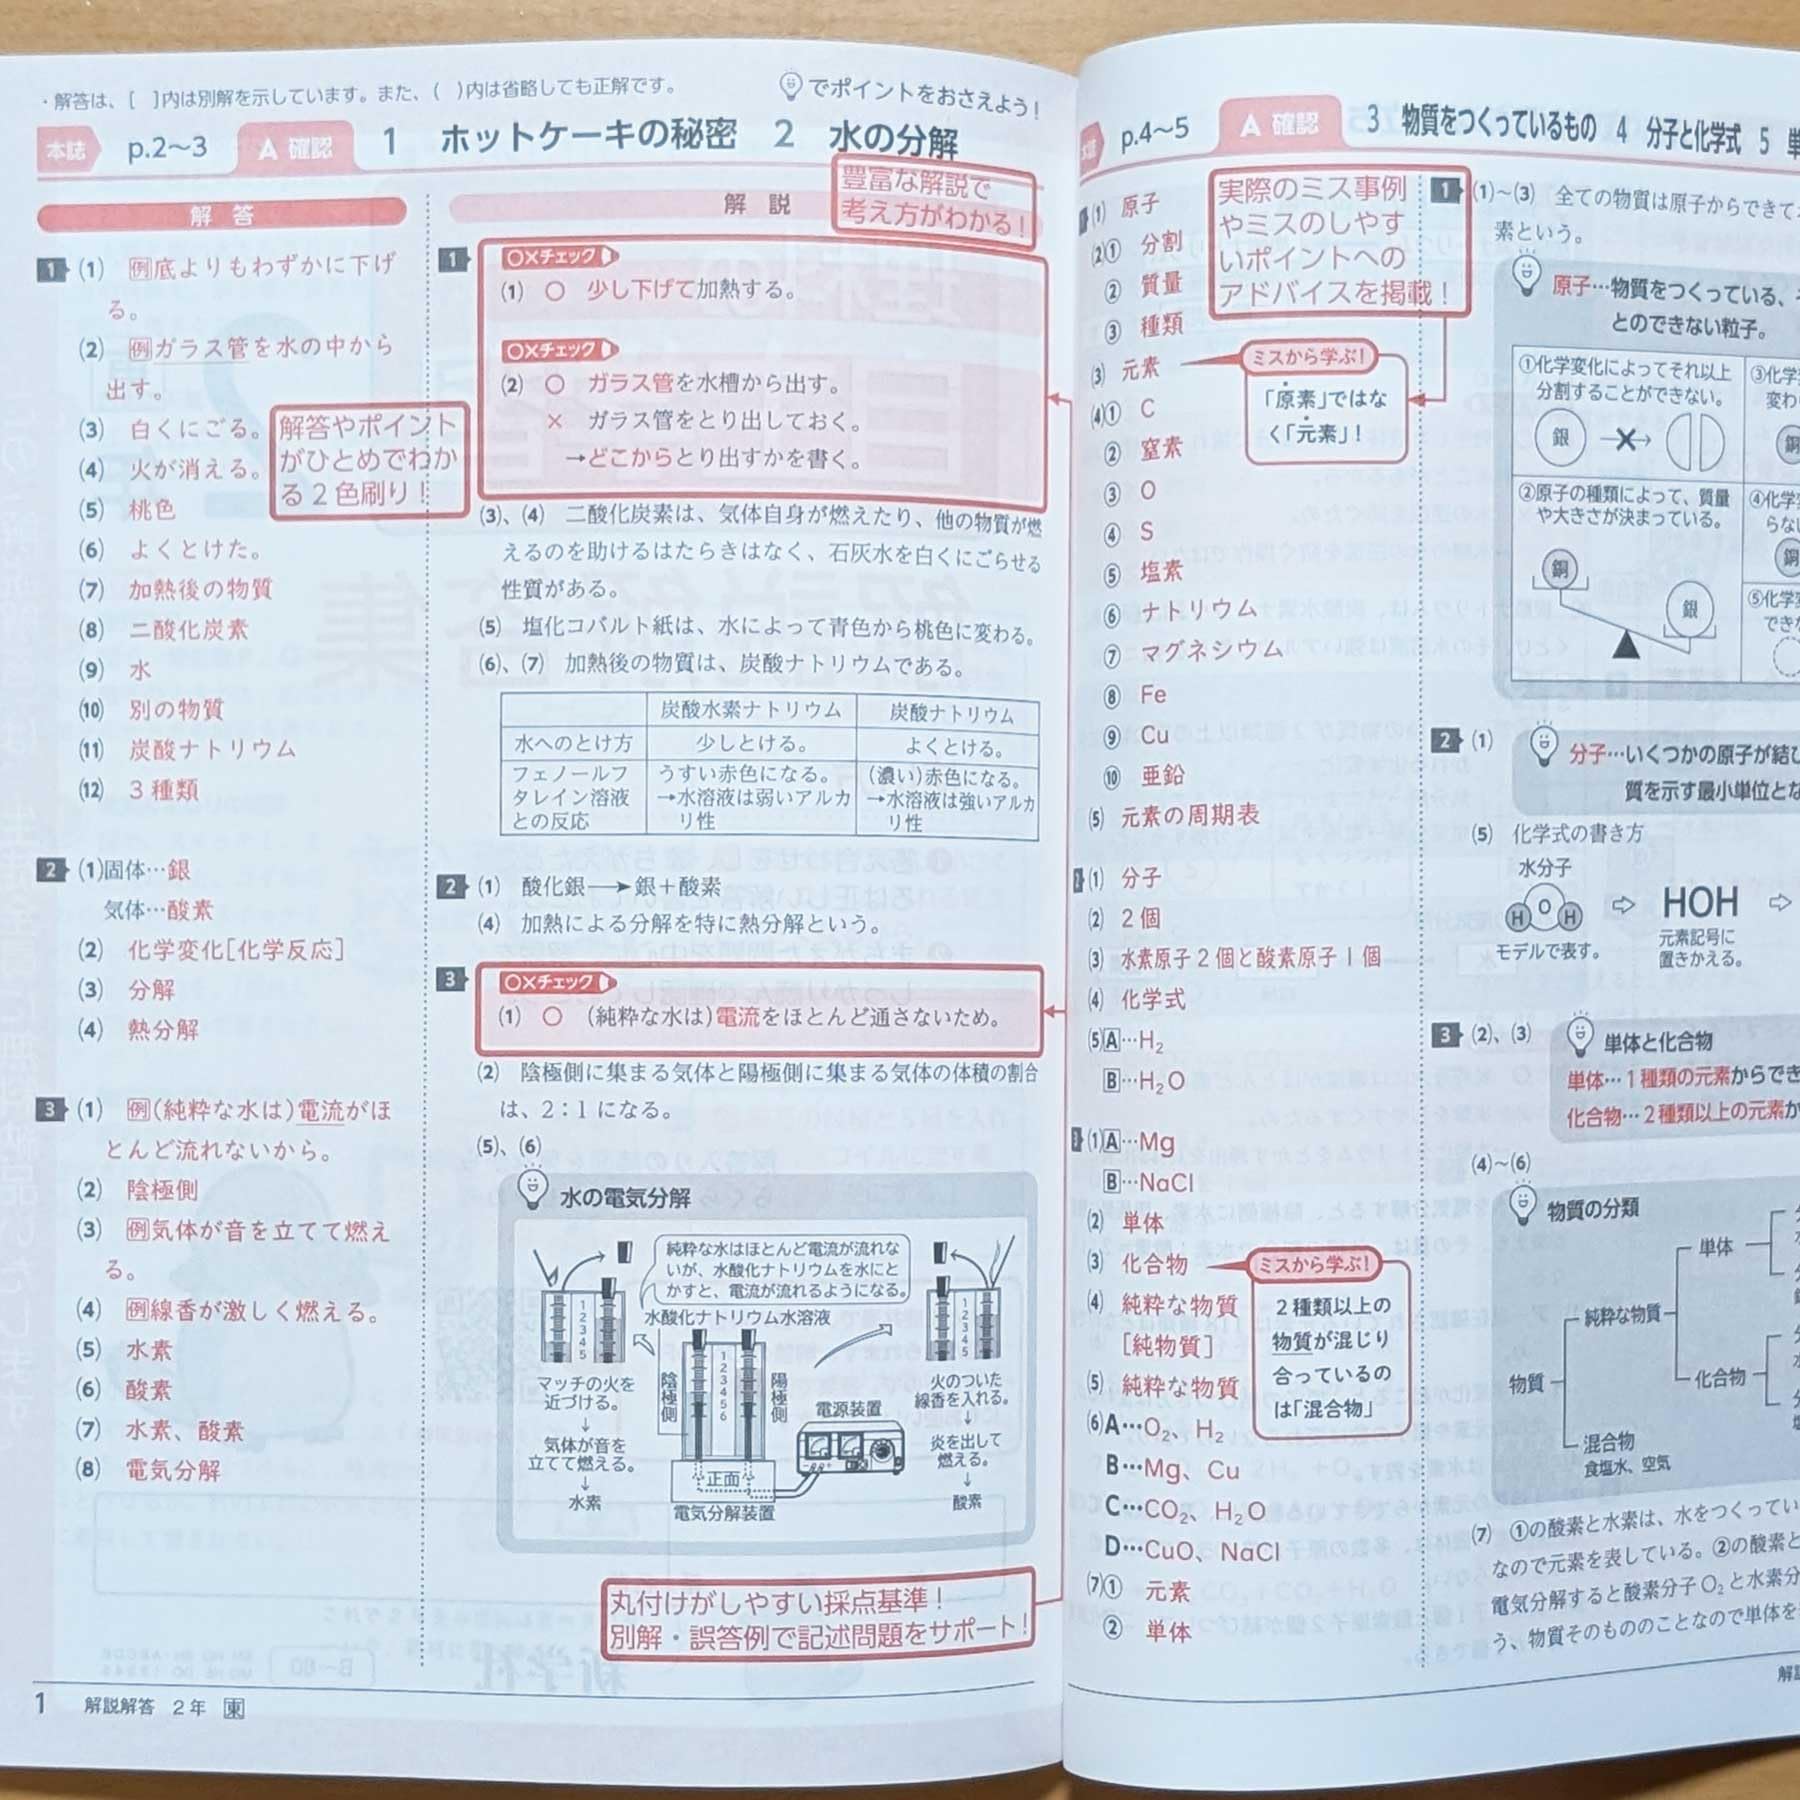 ・解答は、[　]内は別解を示しています。また、(　)内は省略しても正解です。
でポイントをおさえよう！
本誌 p.2〜3 A 確認 1 ホットケーキの秘密 2 水の分解
豊富な解説で
考え方がわかる！
解答
1 (1) 例底よりもわずかに下げ
る。
(2) 例ガラス管を水の中から
出す。
(3) 白くにごる。
(4) 火が消える。
(5) 桃色
(6) よくとけた。
(7) 加熱後の物質
(8) 二酸化炭素
(9) 水
(10) 別の物質
(11) 炭酸ナトリウム
(12) 3種類
解答やポイント
がひとめでわか
る2色刷り！
2 (1)固体…銀
気体…酸素
(2) 化学変化[化学反応]
(3) 分解
(4) 熱分解
3 (1) 例(純粋な水は)電流がほ
とんど流れないから。
(2) 陰極側
(3) 例気体が音を立てて燃え
る。
(4) 例線香が激しく燃える。
(5) 水素
(6) 酸素
(7) 水素、酸素
(8) 電気分解
解説
1 ○×チェック
(1) ○ 少し下げて加熱する。
○×チェック
(2) ○ ガラス管を水槽から出す。
× ガラス管をとり出しておく。
→どこからとり出すかを書く。
(3)、(4) 二酸化炭素は、気体自身が燃えたり、他の物質が燃
えるのを助けるはたらきはなく、石灰水を白くにごらせる
性質がある。
(5) 塩化コバルト紙は、水によって青色から桃色に変わる。
(6)、(7) 加熱後の物質は、炭酸ナトリウムである。
炭酸水素ナトリウム 炭酸ナトリウム
水へのとけ方 少しとける。 よくとける。
フェノールフ うすい赤色になる。 (濃い)赤色になる。
タレイン溶液 →水溶液は弱いアルカ →水溶液は強いアルカ
との反応 リ性 リ性
2 (1) 酸化銀→銀＋酸素
(4) 加熱による分解を特に熱分解という。
3 ○×チェック
(1) ○ (純粋な水は)電流をほとんど通さないため。
(2) 陰極側に集まる気体と陽極側に集まる気体の体積の割合
は、2：1になる。
(5)、(6)
水の電気分解
純粋な水はほとんど電流が流れな
いが、水酸化ナトリウムを水にと
かすと、電流が流れるようになる。
水酸化ナトリウム水溶液
1
2
3
4
5
1
2
3
4
5
6
1
2
3
4
5
陰極側
陽極側
マッチの火を
近づける。
↓
気体が音を
立てて燃える。
↓
水素
電源装置
正面
電気分解装置
火のついた
線香を入れる。
↓
炎を出して
燃える。
↓
酸素
丸付けがしやすい採点基準！
別解・誤答例で記述問題をサポート！
1 解説解答 2年 東
p.4〜5 A 確認 3 物質をつくっているもの 4 分子と化学式 5 単
(1) 原子
(2)① 分割
② 質量
③ 種類
(3) 元素
(4)① C
② 窒素
③ O
④ S
⑤ 塩素
⑥ ナトリウム
⑦ マグネシウム
⑧ Fe
⑨ Cu
⑩ 亜鉛
(5) 元素の周期表
実際のミス事例
やミスのしやす
いポイントへの
アドバイスを掲載！
ミスから学ぶ！
「原素」ではな
く「元素」！
(1) 分子
(2) 2個
(3) 水素原子2個と酸素原子1個
(4) 化学式
(5)A…H₂
B…H₂O
(1)A…Mg
B…NaCl
(2) 単体
(3) 化合物
(4) 純粋な物質
[純物質]
(5) 純粋な物質
(6)A…O₂、H₂
B…Mg、Cu
C…CO₂、H₂O
D…CuO、NaCl
(7)① 元素
② 単体
ミスから学ぶ！
2種類以上の
物質が混じり
合っているの
は「混合物」
1 (1)〜(3) 全ての物質は原子からできて
素という。
原子…物質をつくっている、
とのできない粒子。
①化学変化によってそれ以上
分割することができない。
銀
②原子の種類によって、質量
や大きさが決まっている。
銅
銀
③化学
変わ
銅
④化学
らない
銅
⑤化学変
できな
2 (1) 分子…いくつかの原子が結び
質を示す最小単位とな
(5) 化学式の書き方
水分子
H O H
モデルで表す。
HOH
元素記号に
置きかえる。
3 (2)、(3)
単体と化合物
単体…1種類の元素からでき
化合物…2種類以上の元素か
(4)〜(6)
物質の分類
物質
純粋な物質
単体
化合物
混合物
食塩水、空気
(7) ①の酸素と水素は、水をつくってい
なので元素を表している。②の酸素と
電気分解すると酸素分子O₂と水素分
う、物質そのもののことなので単体を
解説